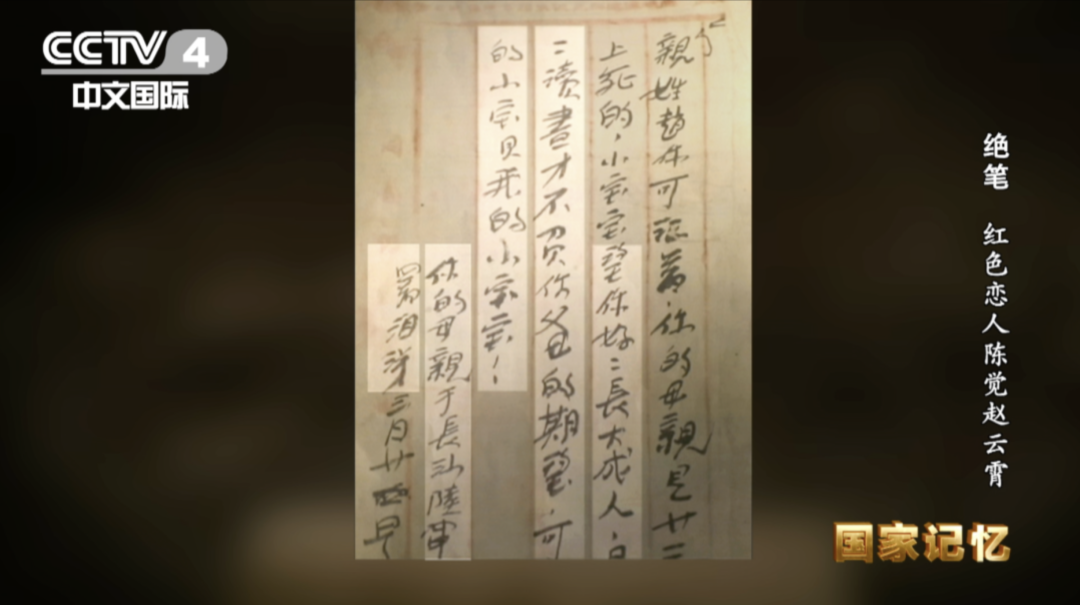 CCTV 4
中文国际
親姓趙你可記着,你的母親是廿三
上死的,小宝宝望你好二長大成人,
二讀書才不負你父母的期望,可
的小宝贝我的小宝宝!
你的母親于長沙陸軍
泪涕三月廿四早
绝笔 红色恋人陈觉赵云霄
国家记忆